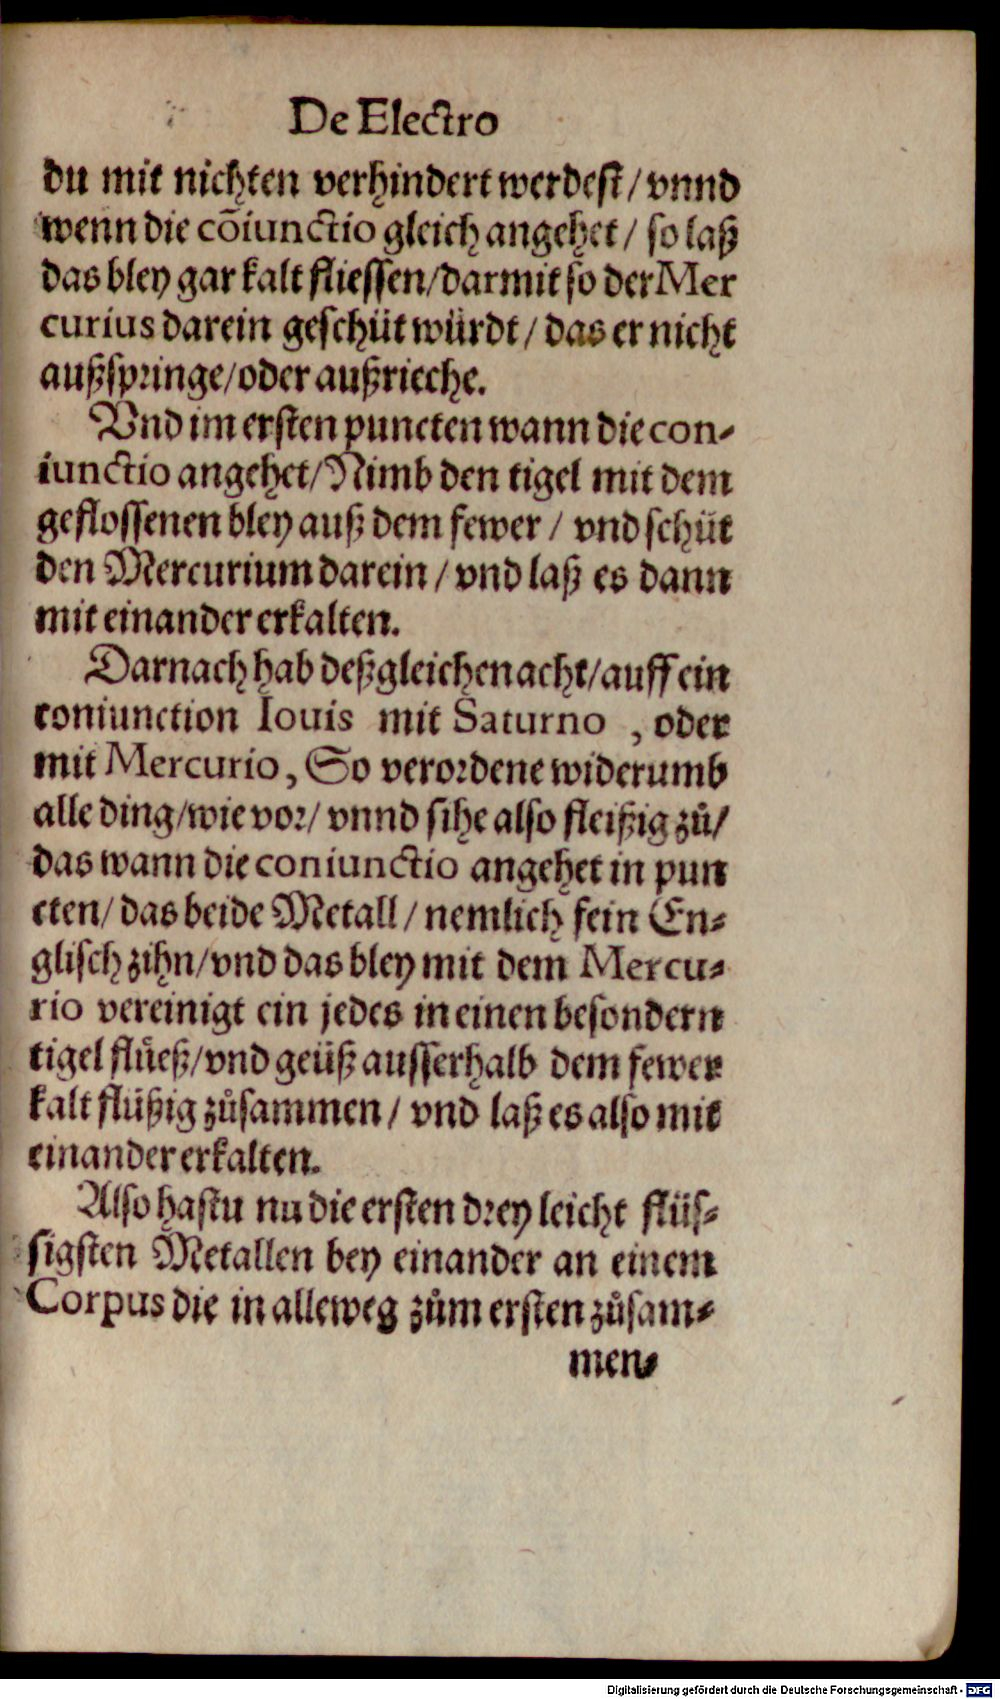 De Electro
du mit nichten verhindert werdest / vnnd
wenn die cõiunctio gleich angehet / so laß
das bley gar kalt fliessen/darmit so der Mer
curius darein geschüt würdt / das er nicht
außspringe/oder außrieche.
Vnd im ersten puncten wann die con⸗
iunctio angehet/Nimb den tigel mit dem
geflossenen bley auß dem fewer / vnd schüt
den Mercurium darein / vnd laß es dann
mit einander erkalten.
Darnach hab deßgleichen acht/auff ein
coniunction Iouis mit Saturno , oder
mit Mercurio, So verordene widerumb
alle ding/wie vor/ vnnd sihe also fleißig zů/
das wann die coniunctio angehet in pun
cten/ das beide Metall / nemlich fein En⸗
glisch zihn/vnd das bley mit dem Mercu⸗
rio vereinigt ein jedes in einen besondern
tigel flüeß/vnd geüß ausserhalb dem fewer
kalt flüßig zůsammen / vnd laß es also mit
einander erkalten.
Also hastu nu die ersten drey leicht flüs⸗
sigsten Metallen bey einander an einem
Corpus die in alleweg zům ersten zůsam⸗
men⸗
Digitalisierung gefördert durch die Deutsche Forschungsgemeinschaft - DFG